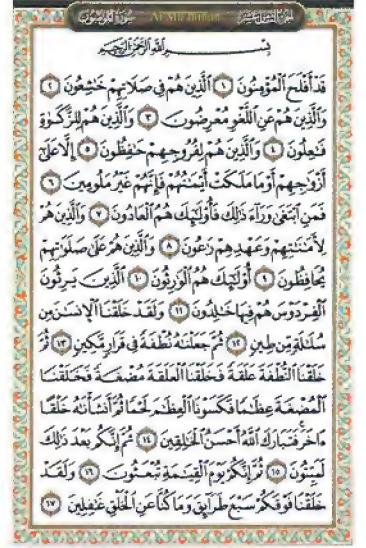 الجزء الثامن عشر Al-Mu'minun سورة المؤمنون
بِسْمِ اللَّهِ الرَّحْمَٰنِ الرَّحِيمِ
قَدْ أَفْلَحَ الْمُؤْمِنُونَ ١ الَّذِينَ هُمْ فِي صَلَاتِهِمْ خَاشِعُونَ ٢
وَالَّذِينَ هُمْ عَنِ اللَّغْوِ مُعْرِضُونَ ٣ وَالَّذِينَ هُمْ لِلزَّكَوٰةِ
فَاعِلُونَ ٤ وَالَّذِينَ هُمْ لِفُرُوجِهِمْ حَافِظُونَ ٥ إِلَّا عَلَىٰ
أَزْوَاجِهِمْ أَوْ مَا مَلَكَتْ أَيْمَانُهُمْ فَإِنَّهُمْ غَيْرُ مَلُومِينَ ٦
فَمَنِ ابْتَغَىٰ وَرَاءَ ذَٰلِكَ فَأُولَٰئِكَ هُمُ الْعَادُونَ ٧ وَالَّذِينَ هُمْ
لِأَمَانَاتِهِمْ وَعَهْدِهِمْ رَاعُونَ ٨ وَالَّذِينَ هُمْ عَلَىٰ صَلَوَاتِهِمْ
يُحَافِظُونَ ٩ أُولَٰئِكَ هُمُ الْوَارِثُونَ ١٠ الَّذِينَ يَرِثُونَ
الْفِرْدَوْسَ هُمْ فِيهَا خَالِدُونَ ١١ وَلَقَدْ خَلَقْنَا الْإِنسَانَ مِن
سُلَالَةٍ مِّن طِينٍ ١٢ ثُمَّ جَعَلْنَاهُ نُطْفَةً فِي قَرَارٍ مَّكِينٍ ١٣ ثُمَّ
خَلَقْنَا النُّطْفَةَ عَلَقَةً فَخَلَقْنَا الْعَلَقَةَ مُضْغَةً فَخَلَقْنَا
الْمُضْغَةَ عِظَامًا فَكَسَوْنَا الْعِظَامَ لَحْمًا ثُمَّ أَنشَأْنَاهُ خَلْقًا
ءَاخَرَ فَتَبَارَكَ اللَّهُ أَحْسَنُ الْخَالِقِينَ ١٤ ثُمَّ إِنَّكُم بَعْدَ ذَٰلِكَ
لَمَيِّتُونَ ١٥ ثُمَّ إِنَّكُمْ يَوْمَ الْقِيَامَةِ تُبْعَثُونَ ١٦ وَلَقَدْ
خَلَقْنَا فَوْقَكُمْ سَبْعَ طَرَائِقَ وَمَا كُنَّا عَنِ الْخَلْقِ غَافِلِينَ ١٧